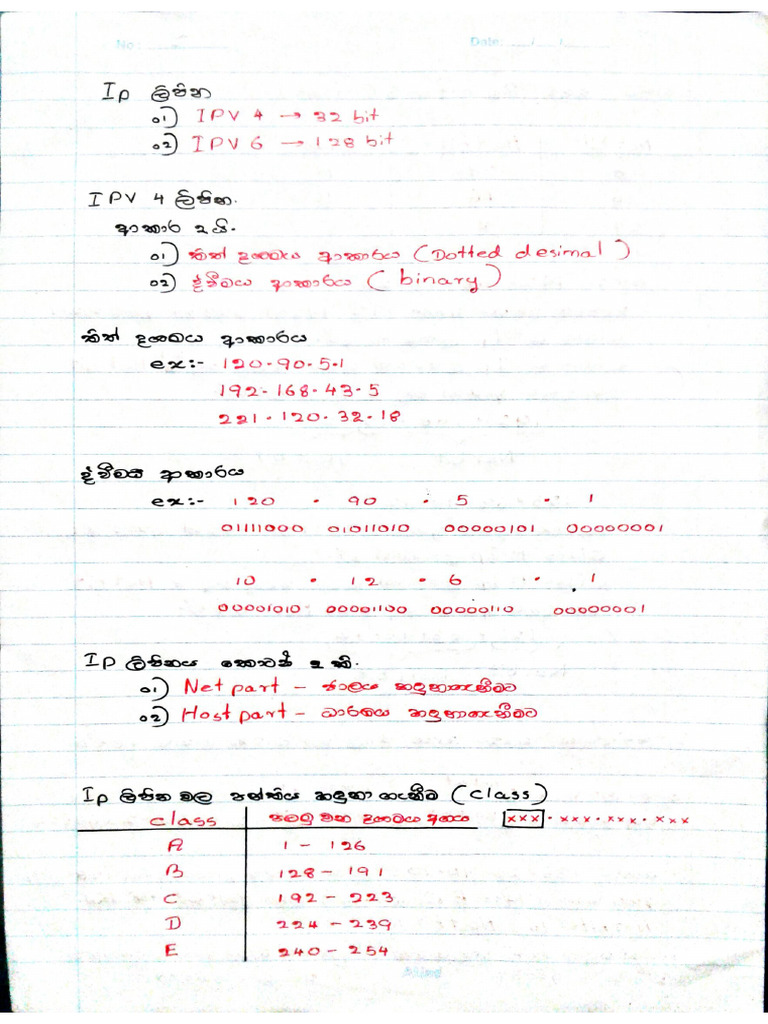 No: Date: / /
Ip ලිපින
01) IPV 4 → 32 bit
02) IPV 6 → 128 bit
IPV 4 ලිපින.
ආකාර 2යි.
01) තිත් දශමය ආකාරය (Dotted desimal)
02) ද්වීමය ආකාරය (binary)
තිත් දශමය ආකාරය
ex:- 120.90.5.1
192.168.43.5
221.120.32.18
ද්වීමය ආකාරය
ex:- 120 . 90 . 5 . 1
01111000 01011010 00000101 00000001
10 . 12 . 6 . 1
00001010 00001100 00000110 00000001
Ip ලිපිනය කොටස් 2 කි.
01) Net part - ජාලය හඳුනාගැනීමට
02) Host part - ධාරකය හඳුනාගැනීමට
Ip ලිපින වල පන්තිය හඳුනා ගැනීම (class)
class පලමු වන දශමය අගය xxx.xxx.xxx.xxx
A 1 - 126
B 128 - 191
C 192 - 223
D 224 - 239
E 240 - 254